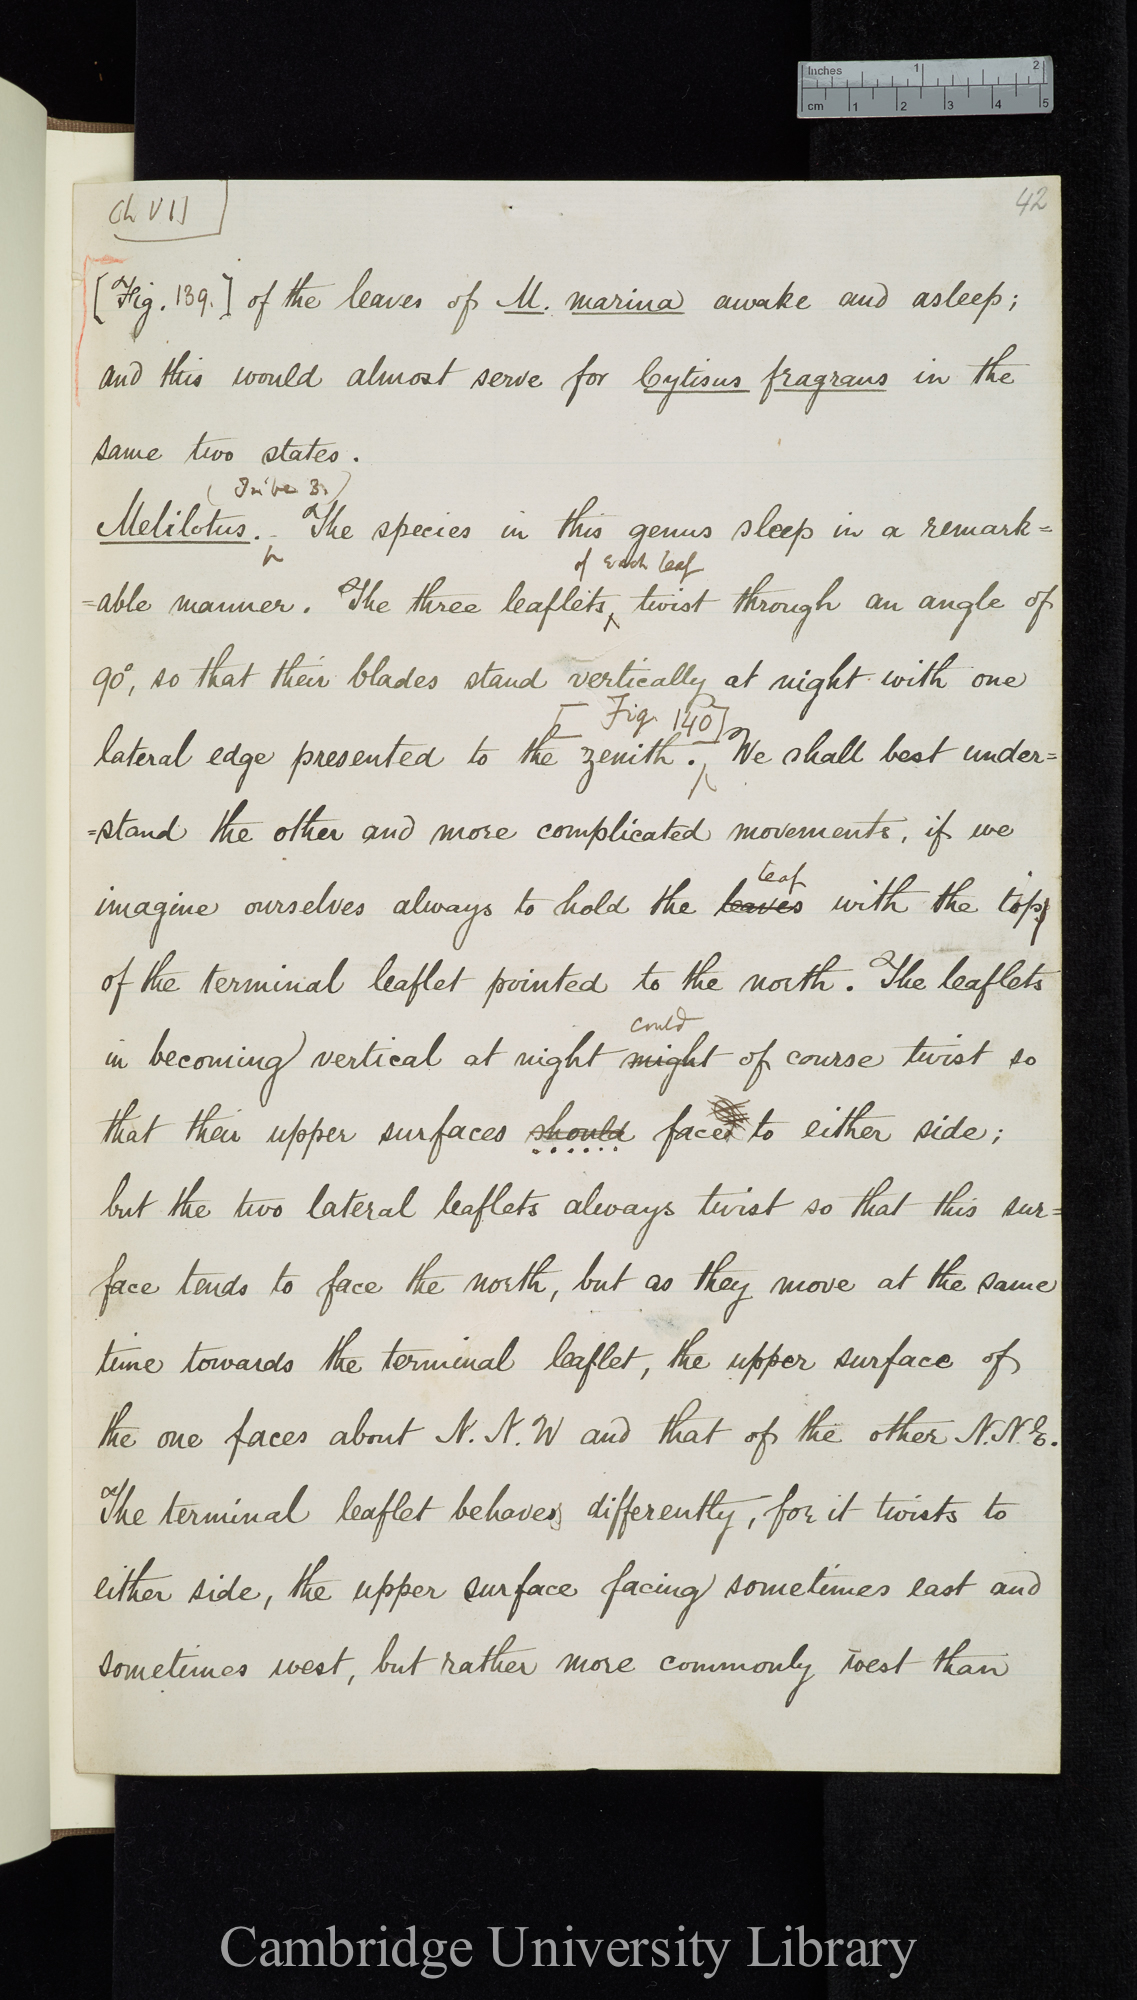 Inches 1 2
cm 1 2 3 4 5
Ch VII
42
[Fig. 139.] of the leaves of M. marina awake and asleep;
and this would almost serve for Cytisus fragrans in the
same two states.
(Tribe 3.)
Melilotus. - The species in this genus sleep in a remark=
of each leaf
=able manner. The three leaflets, twist through an angle of
90°, so that their blades stand vertically at night with one
[Fig. 140]
lateral edge presented to the zenith. We shall best under=
=stand the other and more complicated movements, if we
leaf
imagine ourselves always to hold the leaves with the tip
of the terminal leaflet pointed to the north. The leaflets
could
in becoming vertical at night might of course twist so
that their upper surfaces should face to either side;
but the two lateral leaflets always twist so that this sur=
face tends to face the north, but as they move at the same
time towards the terminal leaflet, the upper surface of
the one faces about N. N. W and that of the other N.N.E.
The terminal leaflet behaves differently, for it twists to
either side, the upper surface facing sometimes east and
sometimes west, but rather more commonly west than
Cambridge University Library